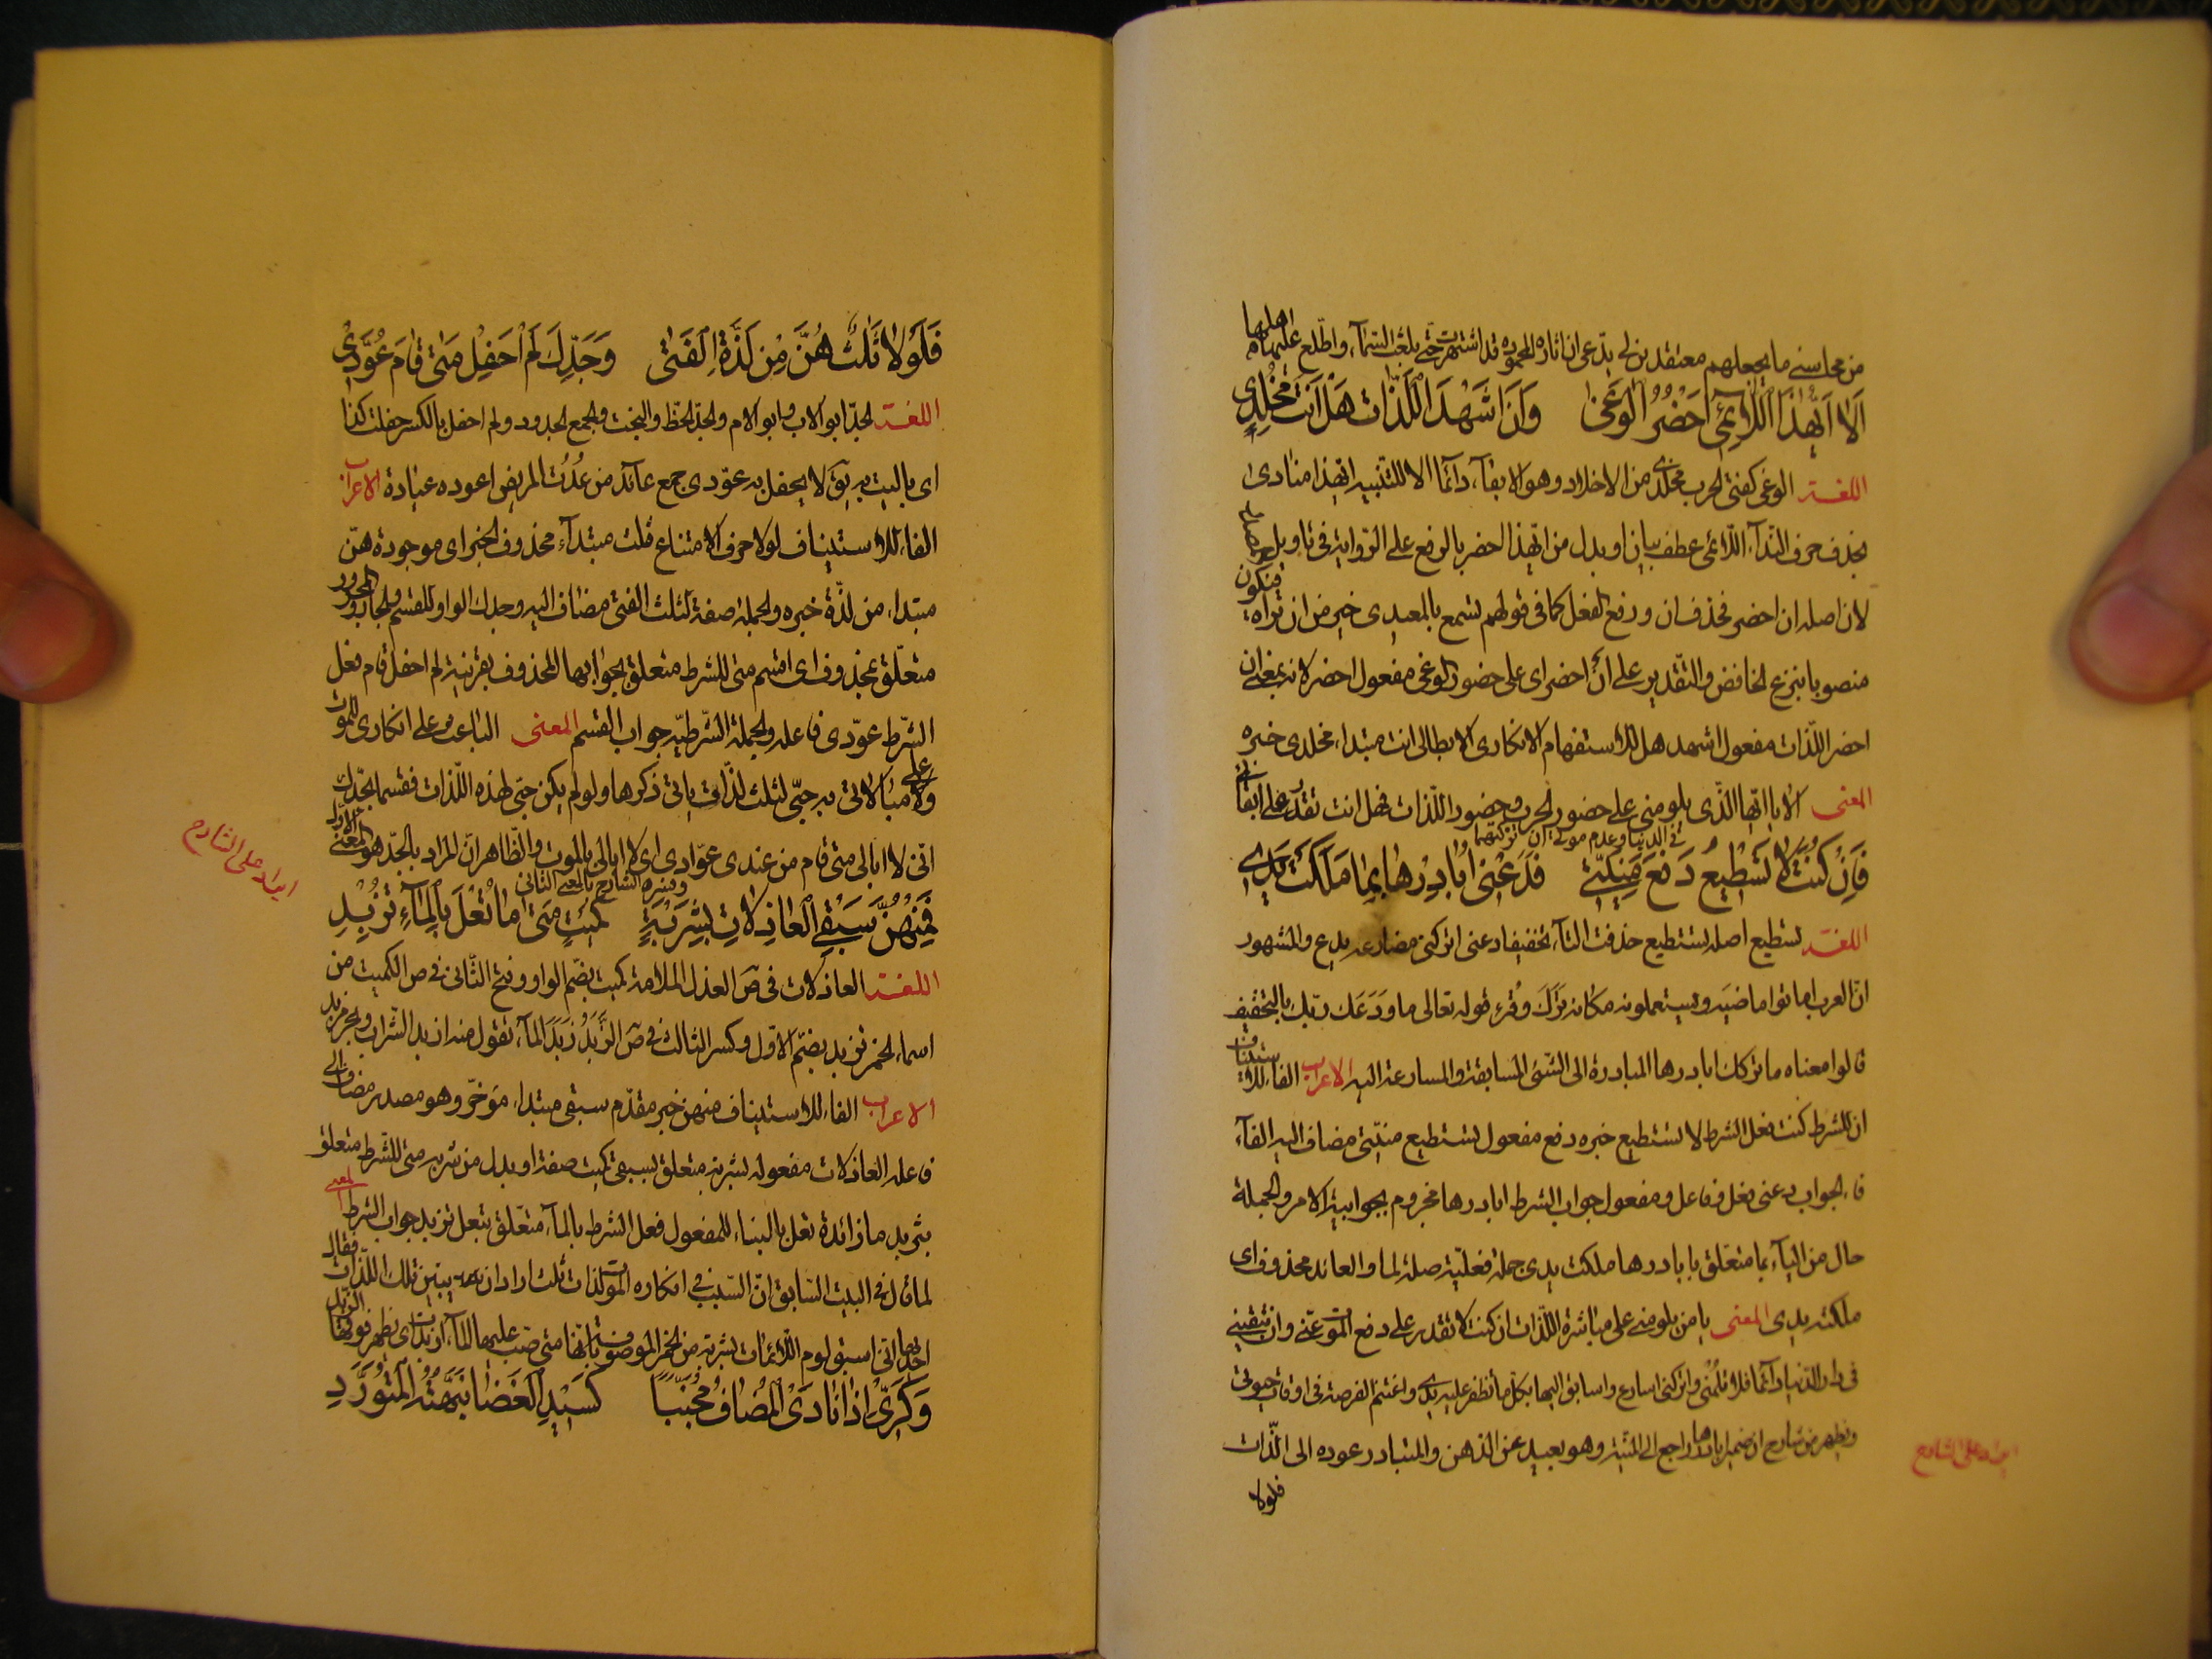 من محاسنے ما يجعلهم معتقدين لے يدّعى ان اثاره المحموده قد اشتهرت حتّے بلغت السّمآء واطّلع عليها اهلها
اَلا اَيُّهٰذَا اللّائِمِى اَحْضُرُ الْوَغىٰ وَاَنْ اَشْهَدَ اللَّذّات هَلْ اَنْتَ مُخْلِدِى
اللغة الوغى كفتى الحرب مخلدى من الاخلاد وهو الابقآء دائمًا الا للتّنبيه ايّهذا منادى
بحذف حرف النّدآء اللّائمى عطف بيان او بدل من ايّهذا احضر بالرفع على الرّواية فى تاويل مصدر
لان اصله ان احضر فحذف ان ورفع الفعل كما فى قولهم تسمع بالمعيدى خير من ان تراه فيكون
منصوبا بنزع الخافض والتّقدير على ان احضر اى على حضور الوغى مفعول احضر لانه بمعنى ان
احضر اللّذات مفعول اشهد هل للاستفهام الانكارى الابطالى انت مبتداء مخلدى خبره
المعنى الا يا ايّها الّذى يلومنى على حضور الحرب وحضور اللّذات فهل انت تقدر على ابقائى
فى الدنيا وعدم موتى ان تركتهما
فَاِنْ كُنْتَ لا تَسْطِيعُ دَفْعَ مَنِيَّتِى فَدَعْنِى اُبادِرْها بِما مَلَكَتْ يَدِى
اللغة تسطيع اصله تستطيع حذفت التآء تخفيفا دعنى اتركنى مضارعه يدع والمشهور
انّ العرب اماتوا ماضيه ويستعملونه مكانه تَرَكَ وقُرِءَ قوله تعالى ما وَدَعَك ربّك بالتخفيف
قالوا معناه ما تركك ابادرها المبادرة الى الشّئ المسابقة والمسارعة اليه الاعراب الفاء للاستيناف
ان للشرط كنت فعل الشرط لا تستطيع خبره دفع مفعول تستطيع منيّتى مضاف اليه الفآء
فاء الجواب دعنى فعل وفاعل ومفعول جواب الشرط ابادرها مجزوم بجوابيّة الامر والجملة
حال من اليآء بما متعّلق بابادرها ملكت يدى جملة فعليّة صلة لما والعائد محذوف اى
ملكته يدى المعنى يا من يلومنے على مباشرة اللّذات ان كنت لا تقدر على دفع الموت عنّے وان تبقينے
فى دار الدّنيا دآئما فلا تلمنى واتركنى اسارع واسابق اليها بكل ما تظفر عليه يدى واغتنم الفرصة فى اوقات حيوتى
ويظهر من شارح ان ضمير ابادرها راجع الى المنيّة وهو بعيد عن الذهن والمتبادر عوده الى اللّذات
ايراد على الشارح
فلولا
فَلَوْلا ثَلٰثٌ هُنَّ مِنْ لَذَّةِ الْفَتىٰ وَجَدِّكَ لَمْ اَحْفِلْ مَتىٰ قامَ عُوَّدِى
اللغة الجدّ ابو الاب وابو الام والجدّ الحظّ والبخت والجمع الجدود ولم احفل بالكسر حفلت كذا
اى باليت به يق لا يحفل به عوّدى جمع عآئد من عُدْتُ المريض اعوده عيادة الاعراب
الفاء للاستيناف لولا حرف الامتناع ثلث مبتدآء محذوف الخبر اى موجودة هنّ
مبتداء من لذّة خبره والجملة صفة لثلث الفتى مضاف اليه وجدك الواو للقسم والجار والمجرور
متعلّق بمحذوف اى اقسم متى للشرط متعلق بجوابها المحذوف بقرينة لم احفل قام فعل
الشّرط عوّدى فاعله والجملة الشّرطيّة جواب القسم المعنى الباعث على انكارى للموت
وعلى لا مبالاتى به حبّى لثلث لذّات ياتى ذكرها ولو لم يكن حبّى لهذه اللّذات فقسما بجدّك
انّى لا ابالى متى قام من عندى عوّادى اى لا ابالى بالموت والظّاهر انّ المراد بالجدّ هو المعنى الاوّل
وفسره الشارح بالمعنى الثانى
ايراد على الشارح
فَمِنْهُنَّ سَبْقِى الْعاذِلاتِ بِشَرْبَةٍ كُمَيْتٍ مَتىٰ ما تُعْلَ بِالْمآءِ تُزْبِدِ
اللغة العاذلات فى ص العذل الملامة كميت بضّم الاول وفتح الثّانى فى ص الكميت من
اسماء الخمر تزبد بضّم الاوّل وكسر الثالث فى ص الزَّبَدُ زَبَدُ المآء تقول منه ازبد الشّراب وبحر مزبد
الاعراب الفاء للاستيناف منهن خبر مقدّم سبقى مبتداء مؤخّر وهو مصدر مضاف الى
فاعله العاذلات مفعوله بشربة متعلق بسبقى كميت صفة او بدل من شربة متى للشّرط متعلق
بتزبد ما زائدة تعل بالبناء للمفعول فعل الشرط بالمآء متعّلق بتعل تزبد جواب الشرط المعنى
لما قال فى البيت السّابق انّ السّبب فى انكاره الموت لذات ثلث اراد ان يبيّن تلك اللّذات فقال
احديها انّى اسبق لوم اللّائمات بشربة من الخمر الموصوفة بانّها متى صبّ عليها المآء ازبدت اى يظهر فوقها الزبد
وَكَرِّى اِذا نادَى الْمُضافُ مُحَنَّبًا كَسِيدِ الْغَضا نَبَّهْتَهُ الْمُتَوَرِّدِ